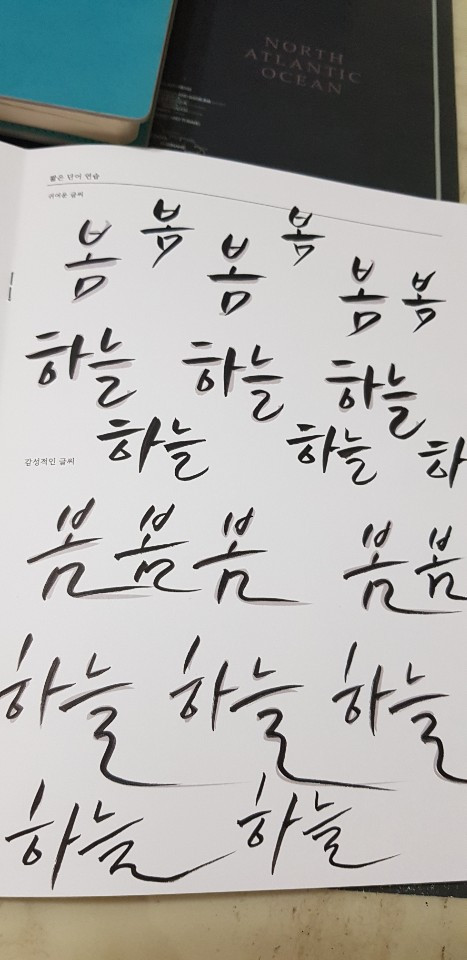 NORTH
ATLANTIC
OCEAN
짧은 단어 연습
귀여운 글씨
봄 봄 봄 봄 봄 봄
하늘 하늘 하늘
하늘 하늘 하
감성적인 글씨
봄 봄 봄 봄 봄
하늘 하늘 하늘
하늘 하늘